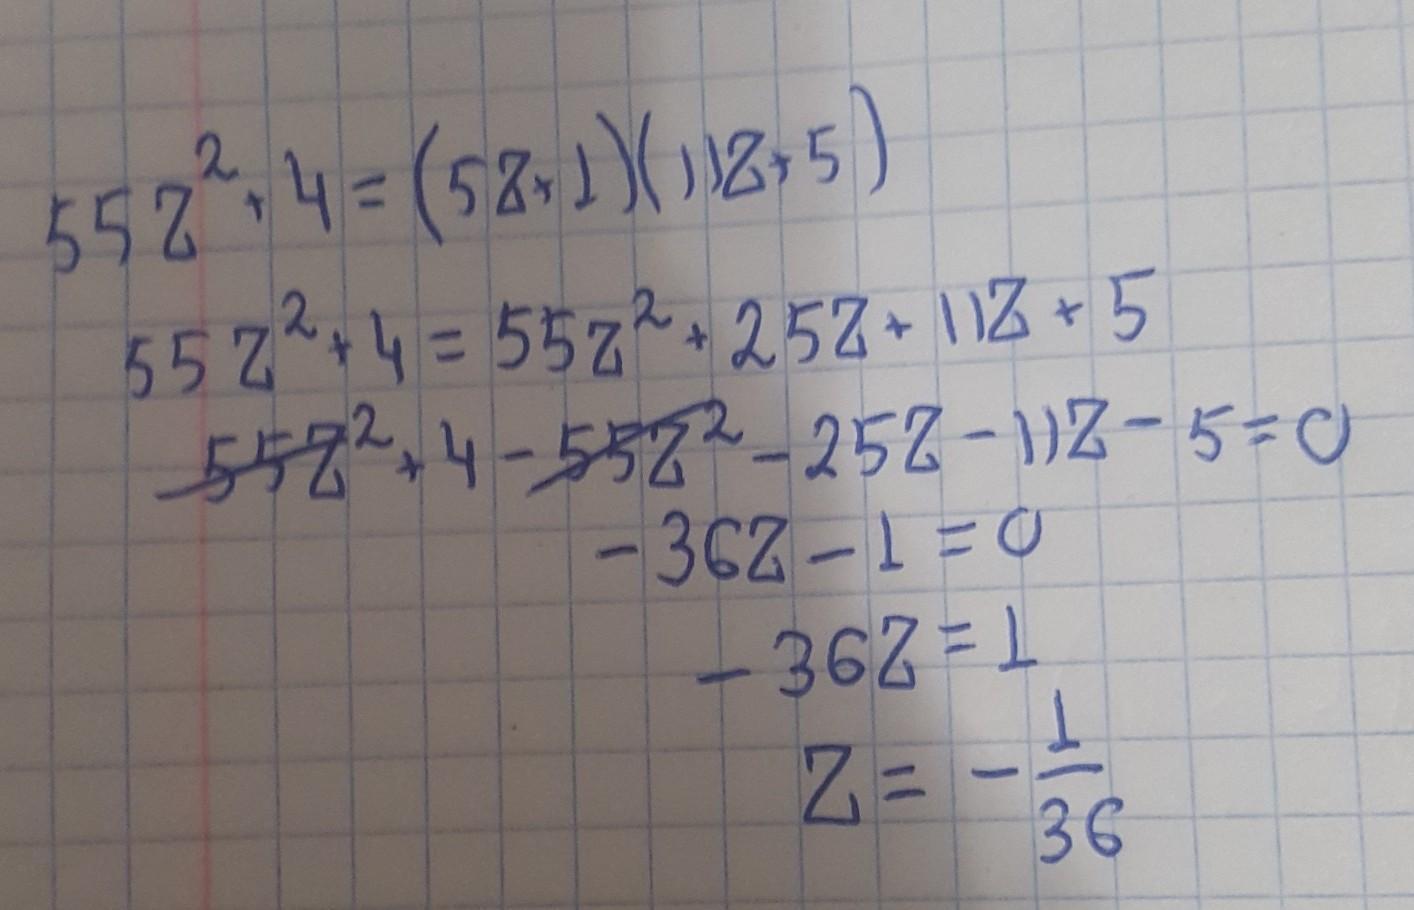 55z² + 4 = (5z + 1)(11z + 5)
55z² + 4 = 55z² + 25z + 11z + 5
55z² + 4 - 55z² - 25z - 11z - 5 = 0
-36z - 1 = 0
-36z = 1
z = -1/36